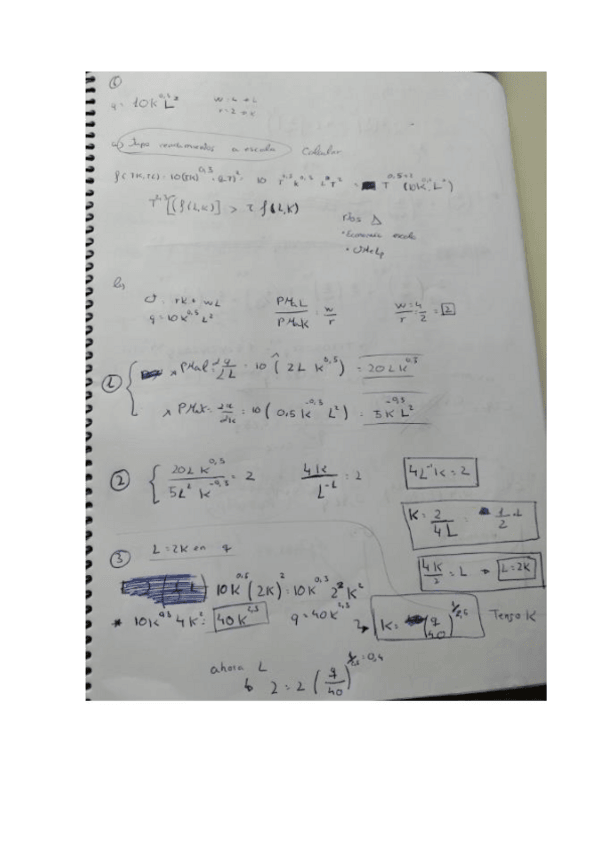 ⑥
q = 10K^0,5 L^2    w = 4 → L
r = 2 → K
a) tipo rendimientos a escala    Calcular
f(TK,TL) = 10(TK)^0,5 · (LT)^2 = 10 T^0,5 K^0,5 L^2 T^2 = T^0,5+2 (10K^0,5 L^2)
T^2,5 [(f(L,K)] > T f(L,K)
Rtos Δ
• Economía escala
b)
CT = rK + wL    PMaL / PMaK    w / r    w / r = 4 / 2 = 2
q = 10K^0,5 L^2
① PMaL = ∂q/∂L = 10 (2L K^0,5) = 20LK^0,5
PMaK = ∂q/∂K = 10 (0,5K^-0,5 L^2) = 5K^-0,5 L^2
② { 20L K^0,5 / 5L^2 K^-0,5 = 2    4K / L = 2    4L^-1 K = 2
K = 2 / 4L = 1/2 · L
③ L = 2K en q    4K / 2 = L → L = 2K
10K^0,5 (2K)^2 = 10K^0,5 2^2 K^2
* 10K^0,5 4K^2 = 40K^2,5    q = 40K^2,5    K = (q/40)^1/2,5    Tengo K
ahora L
2 = 2 (q/40)^1/2,5 = 0,4